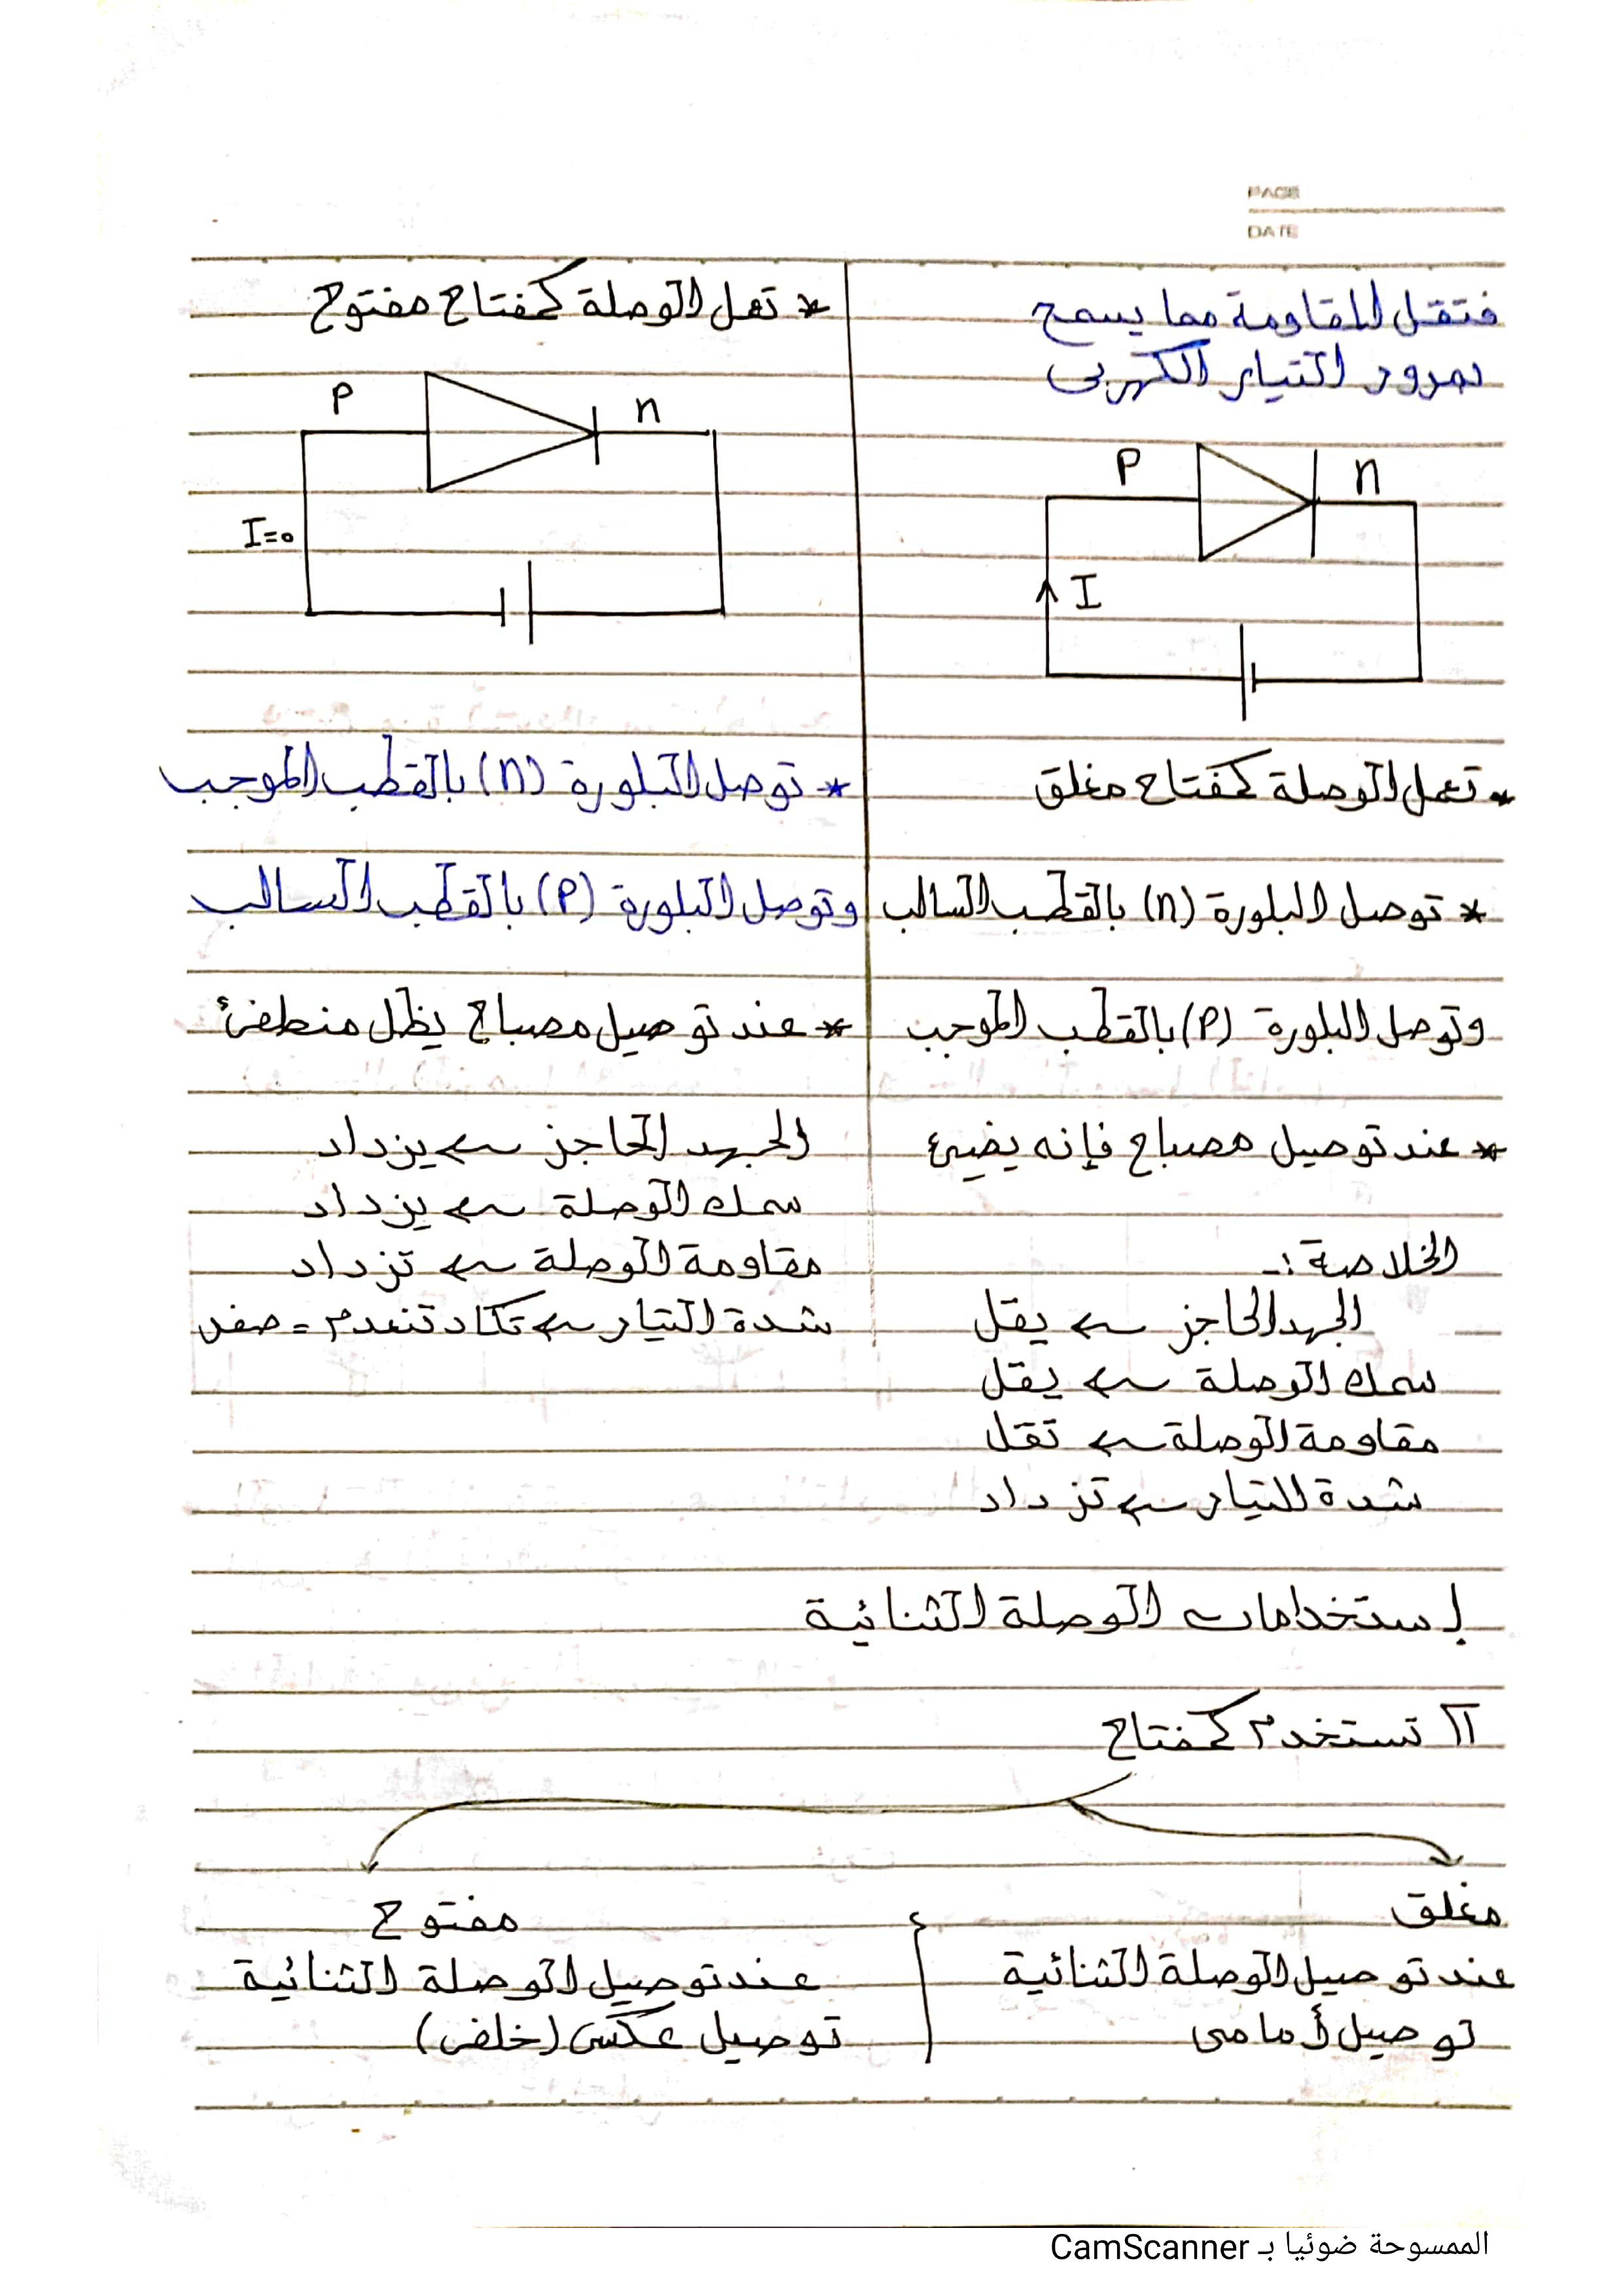 PAGE
DATE
فتقل المقاومة مما يسمح
بمرور التيار الكهربى
P
n
I
* تعمل الوصلة كمفتاح مغلق
* توصل البلورة (n) بالقطب السالب
وتوصل البلورة (P) بالقطب الموجب
* عند توصيل مصباح فإنه يضيئ
الخلاصة :-
الجهد الحاجز ← يقل
سمك الوصلة ← يقل
مقاومة الوصلة ← تقل
شدة التيار ← تزداد
* تعمل الوصلة كمفتاح مفتوح
P
n
I=0
* توصل البلورة (n) بالقطب الموجب
وتوصل البلورة (P) بالقطب السالب
* عند توصيل مصباح يظل منطفئ
الجهد الحاجز ← يزداد
سمك الوصلة ← يزداد
مقاومة الوصلة ← تزداد
شدة التيار ← تكاد تنعدم = صفر
إستخدامات الوصلة الثنائية
1 تستخدم كمفتاح
مغلق
عند توصيل الوصلة الثنائية
توصيل أمامى
مفتوح
عند توصيل الوصلة الثنائية
توصيل عكسى (خلفى)
الممسوحة ضوئيا بـ CamScanner